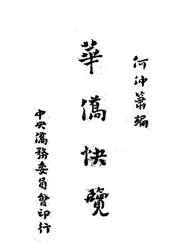 何沖簫編
華僑快覽
中央僑務委員會印行